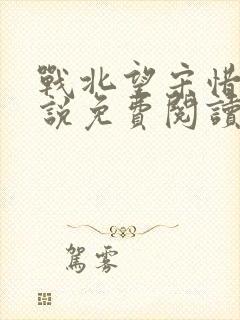 戰北望宋惜
說免費閱讀
駕霧